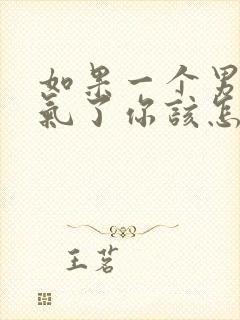 如果一个男
氣了你该怎
王茗